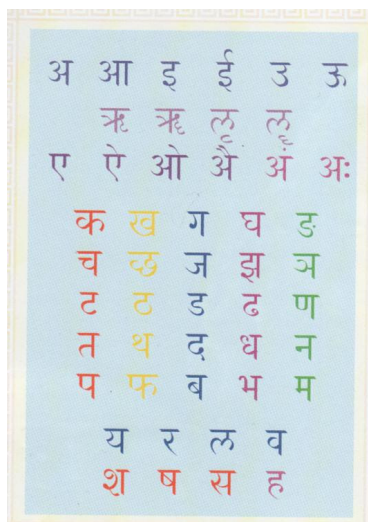 अ आ इ ई उ ऊ
ऋ ॠ ऌ ॡ
ए ऐ ओ अै अं अः
क ख ग घ ङ
च छ ज झ ञ
ट ठ ड ढ ण
त थ द ध न
प फ ब भ म
य र ल व
श ष स ह